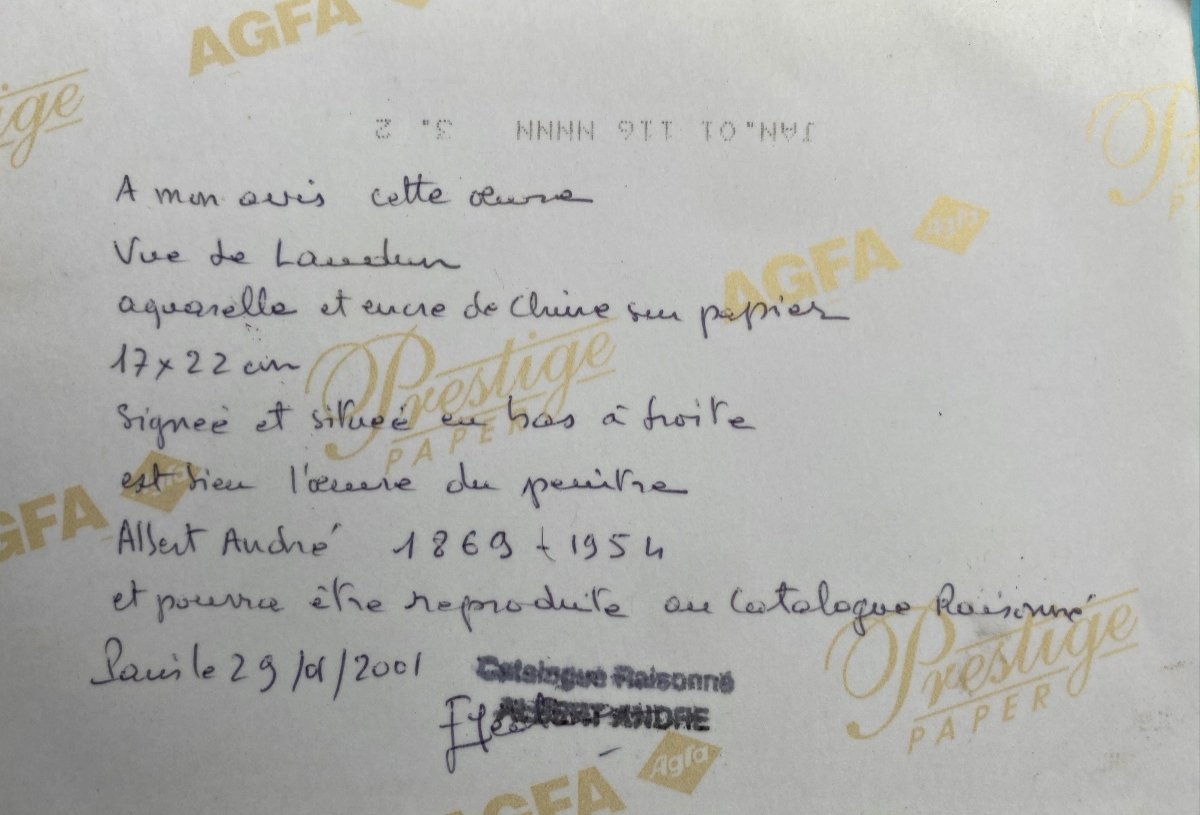 AGFA
Prestige
JAN.01 116 NNNN 3.2
A mon avis cette œuvre
Vue de Laudun
aquarelle et encre de Chine sur papier
17 x 22 cm
Signeé et situeé en bas à droite
est bien l'œuvre du peintre
Albert André 1869 - 1954
et pourra être reproduite au Catalogue Raisonné
Paris le 29/01/2001
Catalogue Raisonné
ALBERT ANDRE
AGFA Agfa
Prestige
PAPER
AGFA Agfa
Prestige
PAPER
AGFA Agfa